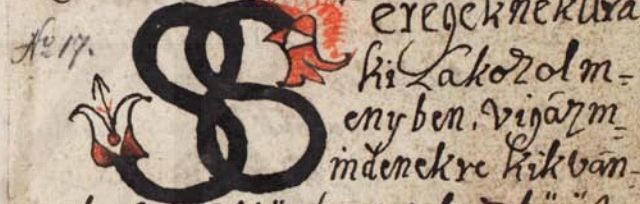 No 17.
S eregeknek Ura
ki Lakozol m=
enyben, vigázm
indenekre kik ván-